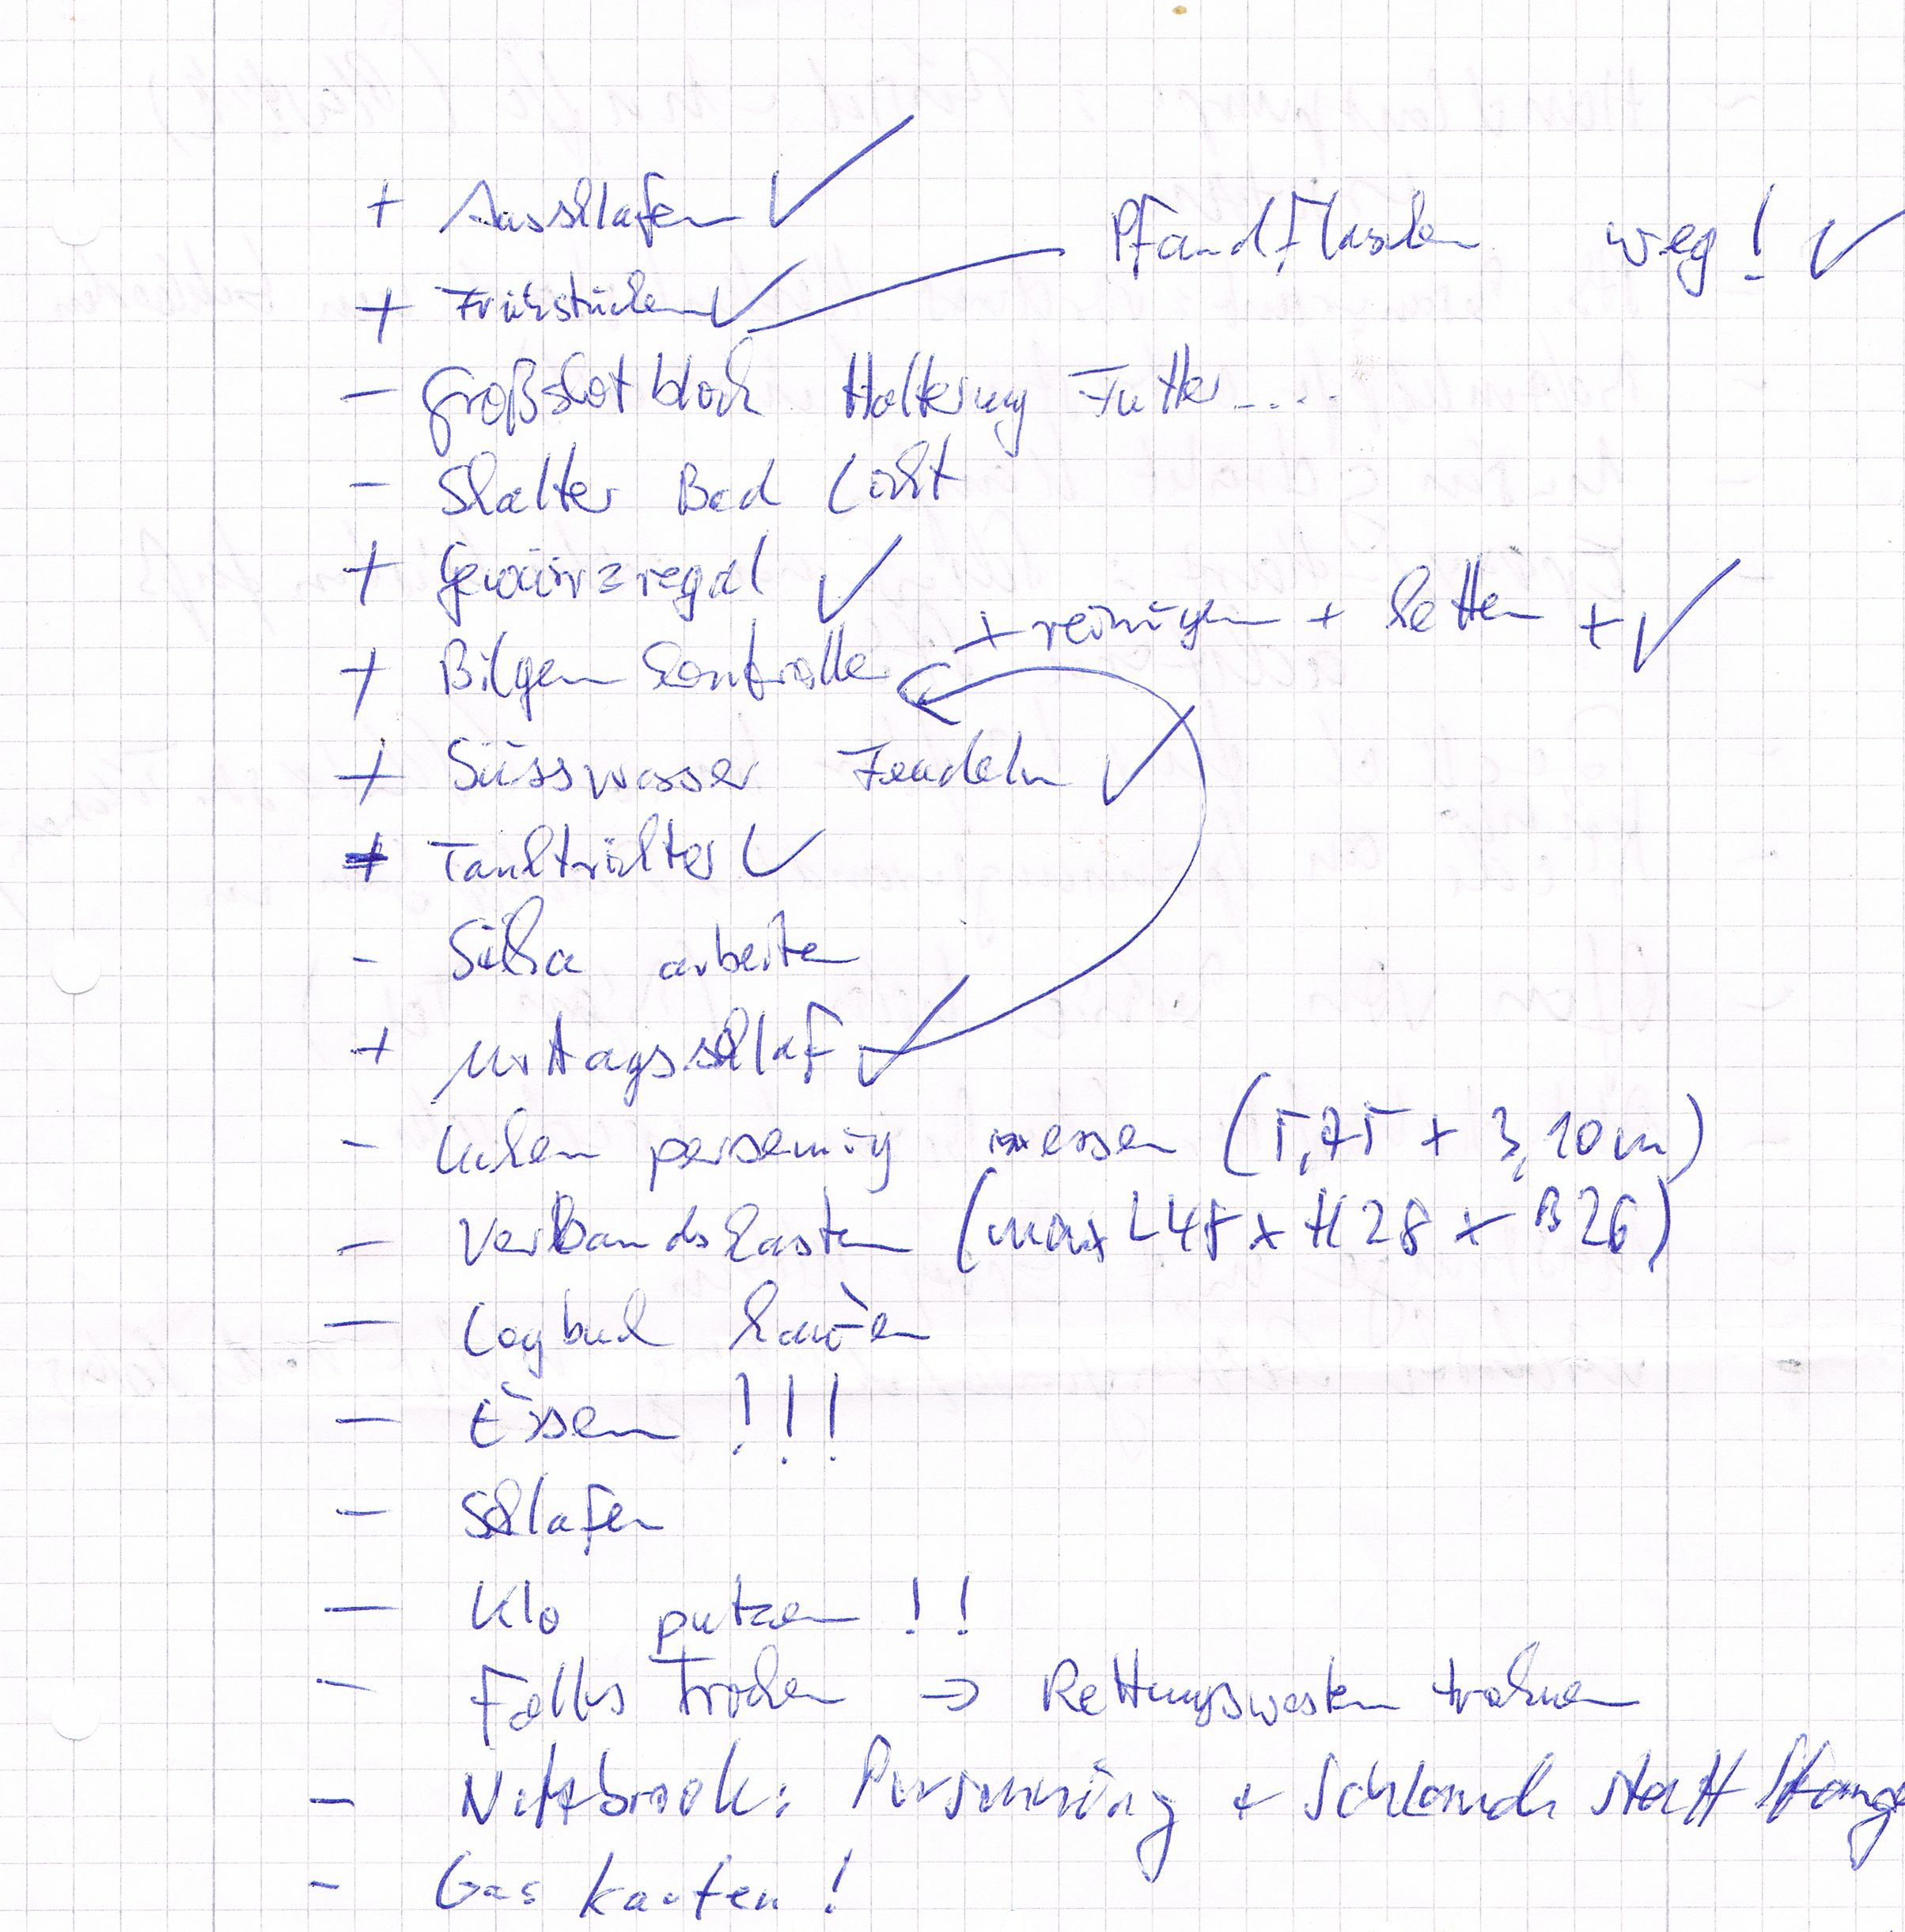 + Ausschlafen ✓
Pfandflaschen weg! ✓
+ Frühstücken ✓
- Großschotblock Halterung Futter.....
- Schalter Bad Licht
+ Gewürzregal ✓
+ reinigen + retten + ✓
+ Bilgenkontrolle
+ Süsswasser Feudeln ✓
+ Tanktrichter ✓
- Sika arbeiten
+ Mittagsschlaf ✓
- Luken persenning messen (1,75 + 3,10m)
- Verbandskasten (max L48 x H28 x B26)
- Logbuch kaufen
- Essen !!!
- Schlafen
- Klo putzen !!
- Falls Trocken → Rettungswesten trocknen
- Persenning + Schlauch statt Stange
- Gas kaufen!